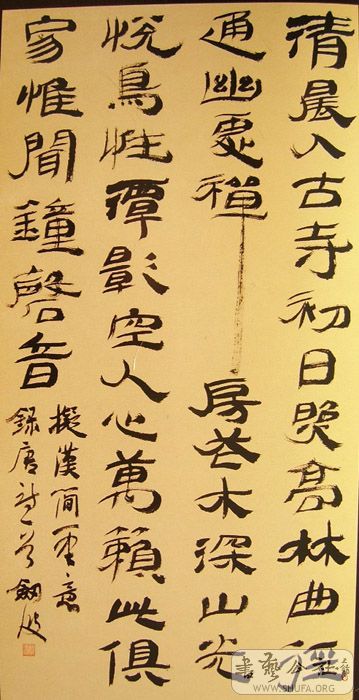 清晨入古寺初日照高林曲徑
通幽處禪房花木深山光
悦鳥性潭影空人心萬籟此俱
寂惟聞鐘磬音
擬漢簡筆意
錄唐詩一首
WWW.SHUFA.ORG